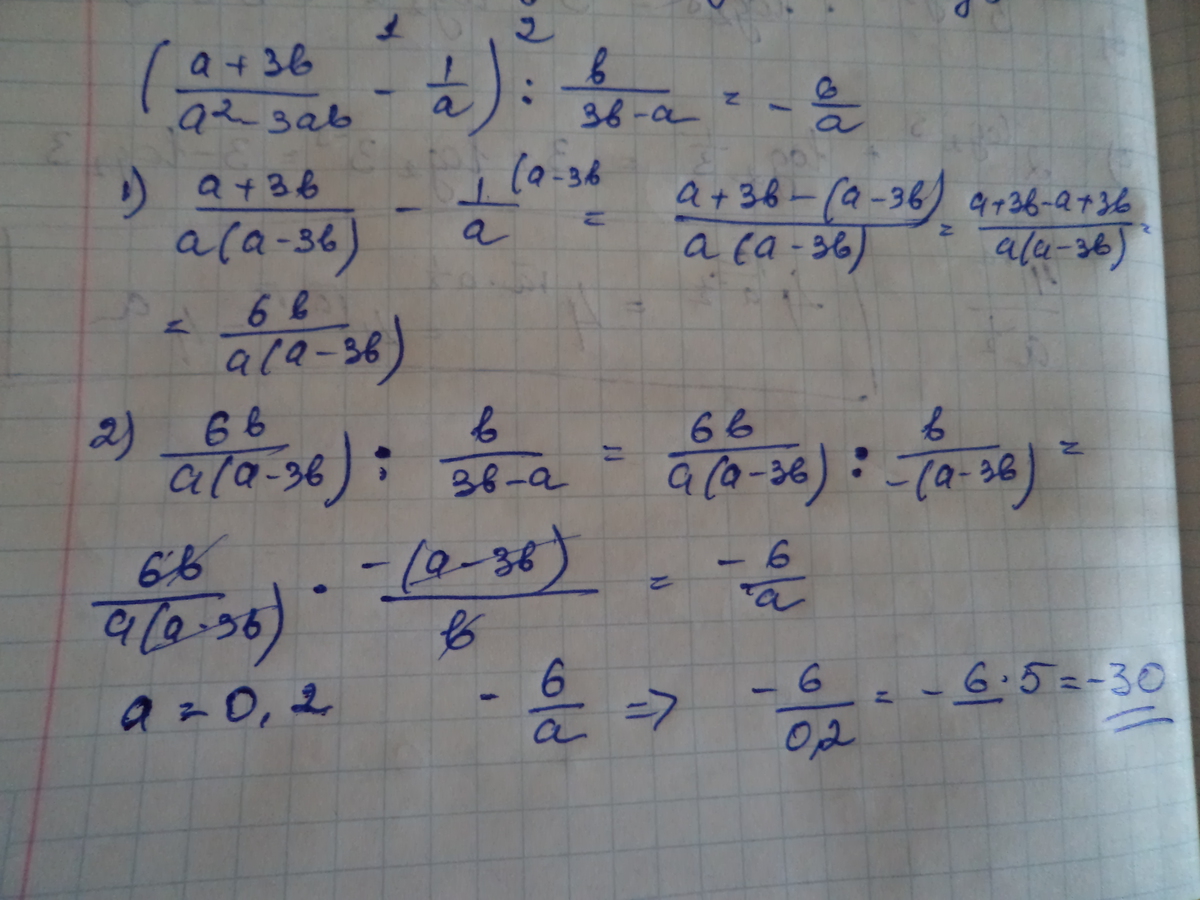 1 2
(a+3b/a²-3ab - 1/a) : b/3b-a = -6/a
1) a+3b/a(a-3b) - 1/a (a-3b = a+3b-(a-3b)/a(a-3b) = a+3b-a+3b/a(a-3b) =
= 6b/a(a-3b)
2) 6b/a(a-3b) : b/3b-a = 6b/a(a-3b) : b/-(a-3b) =
6b/a(a-3b) · -(a-3b)/b = -6/a
a = 0,2 -6/a => -6/0,2 = -6·5=-30